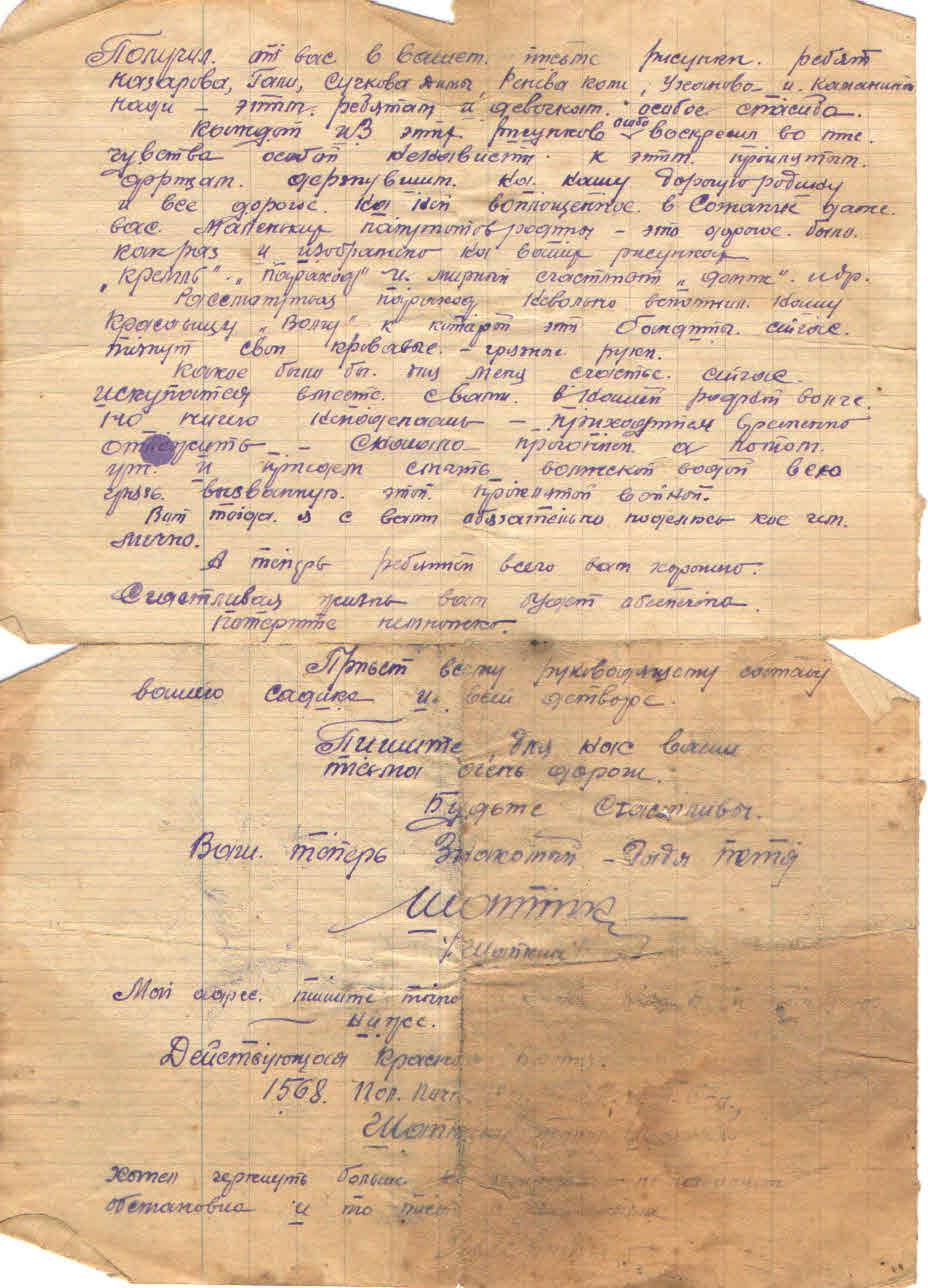 Получил. от вас в вашем. письме рисунки. ребят
Назарова, Гали, Сучкова Димы, Коли, и. Каманиной
Нади – этим. ребятам и девочкам. особое спасибо.
Каждый из этих рисунков особо воскресил во мне.
чувства особой ненависти. к этим. проклятым.
фрицам. дерзнувшим. на. нашу дорогую родину
и все дорогое. на ней воплощенное. в создании даже.
вас. маленьких патриотов родины – это дорогое. было.
как раз и изображено на ваших рисунках
„Кремль". „Параход" и. мирный счастливый „домик". и др.
Рассматривая параход невольно вспомнил. нашу
красавицу „Волгу" к которой эти бандиты. сейчас.
тянут свои кровавые. – грязные руки.
Какое было бы. для меня счастье. сейчас.
искупатся вместе. с вами. в нашей родной волге.
Но ничего неподелаешь – приходится временно
отложить – сначало прогоним. а потом.
и придем смыть волжской водой всю
грязь. вызванную. этой. проклятой войной.
Вот тогда. я с вами обязательно поделюсь кое чем.
лично.
А теперь ребятки всего вам хорошего.
Счастливая жизнь вам будет абеспечена.
Потерпите немножко.
Привет всему руководящему составу
вашего садика и. всей детворе.
Пишите, для нас ваши
письма очень дороги.
Будьте Счастливы.
Ваш. теперь Знакомый – Дядя Петя
Шапкин
/Шапкин/
Мой адрес. пишите
ниже.
Действующая Красная
1568. Пол. Поч.
Хотел черкнуть больше.
обстановка и то